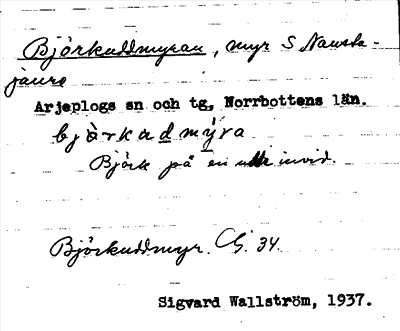 Björkuddmyran, myr S Nausta-
jaure
Arjeplogs sn och tg, Norrbottens län.
bjàrkadmýra
Björk på en udde invid.
Björkuddmyr. CG. 34.
Sigvard Wallström, 1937.